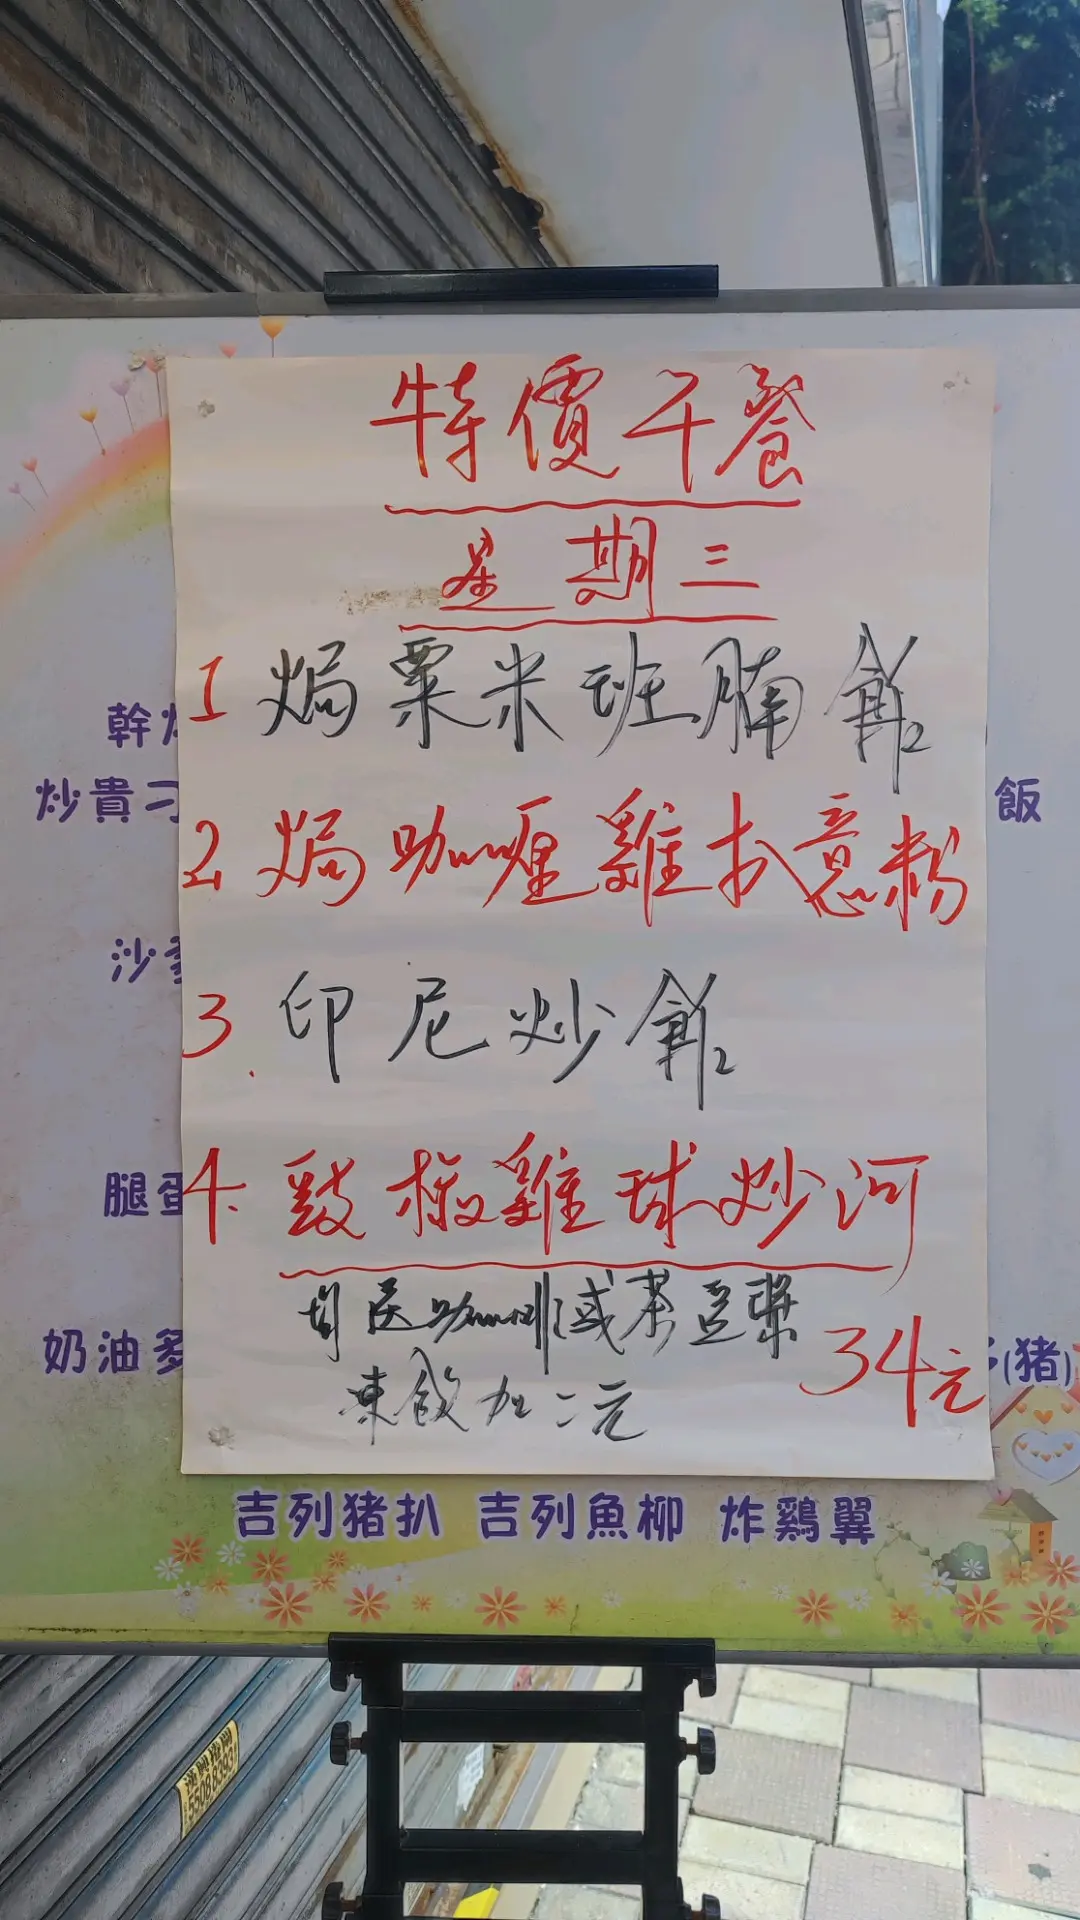 特價午餐
星期三
1 焗粟米班腩飯
幹
炒貴刁
飯
2 焗咖喱雞扒意粉
沙
3 印尼炒飯
腿蛋
4. 豉椒雞球炒河
均送咖啡或茶豆漿
奶油多
(猪)
34元
凍飲加二元
吉列猪扒 吉列魚柳 炸鷄翼